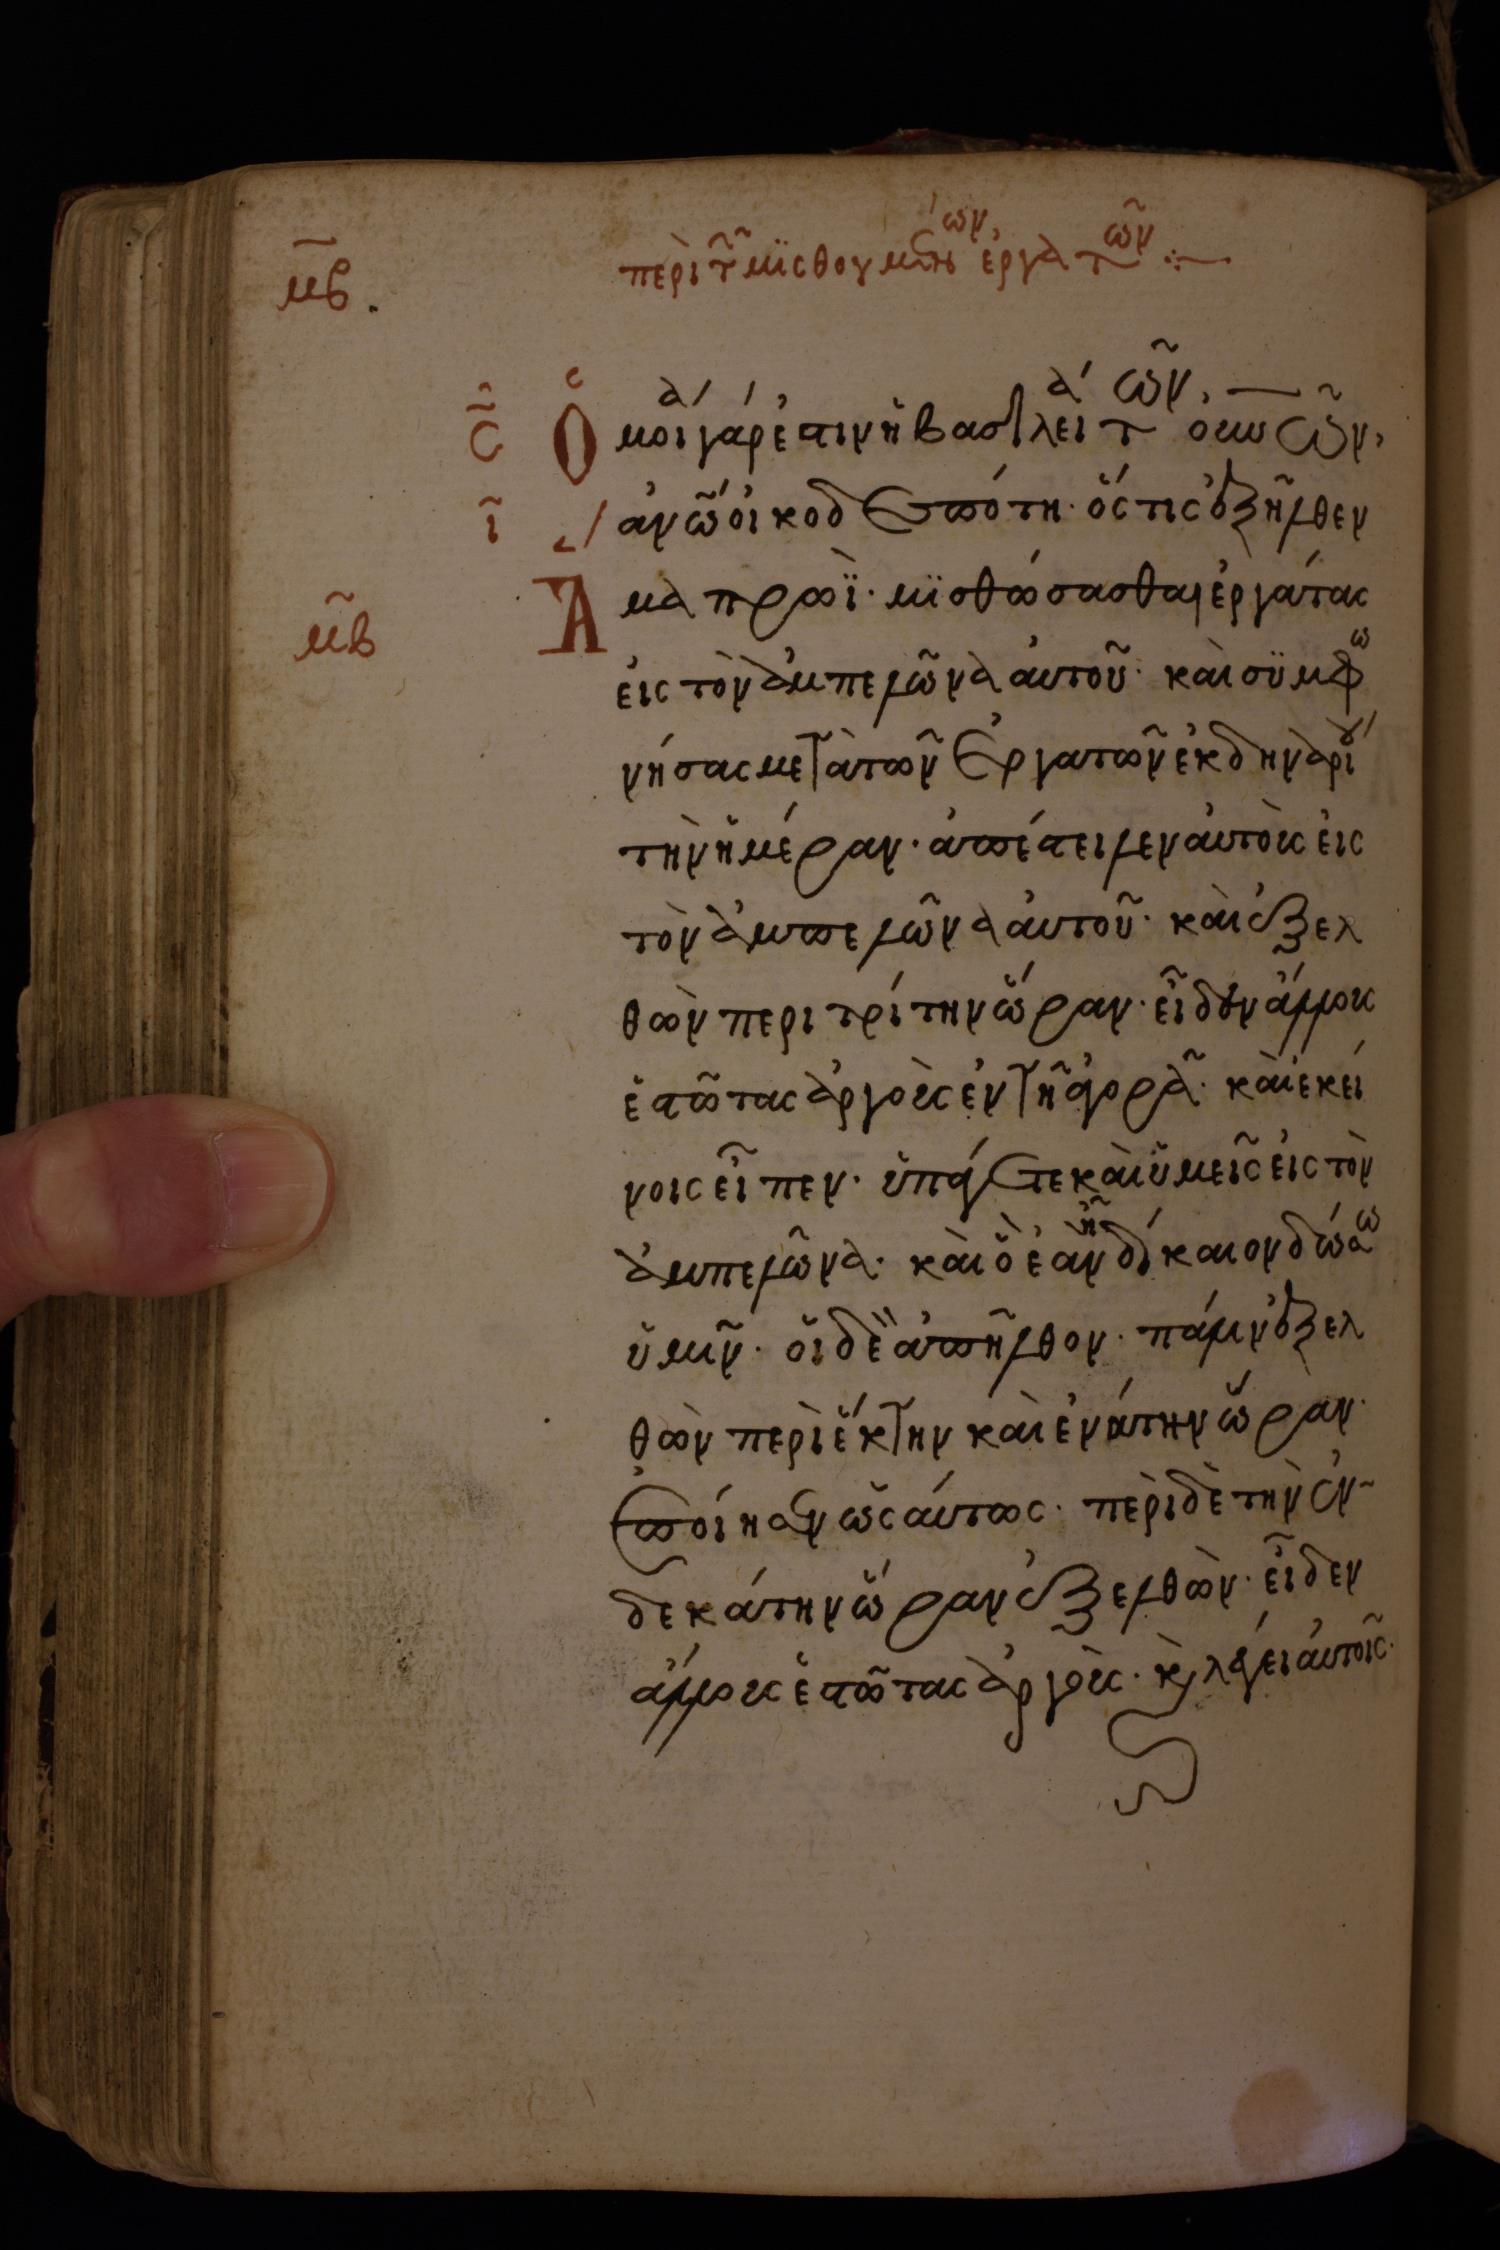 μβ. περὶ τῶν μϊσθουμένων ἐργατῶν
σ Ὁμοία γάρ ἐστιν ἡ βασιλεία τῶν οὐνῶν,
ι ἀνῶ οἰκοδεσπότη· ὅστις ἐξῆλθεν
μβ Ἅμα πρωῒ· μϊσθώσασθαι ἐργάτας
εἰς τὸν ἀμπελῶνα αὐτοῦ· καὶ συμφω
νήσας μετὰ τῶν ἐργατῶν ἐκ δηναρίου
τὴν ἡμέραν· ἀπέστειλεν αὐτοὺς εἰς
τὸν ἀμπελῶνα αὐτοῦ· καὶ ἐξελ
θὼν περι τρίτην ὥραν· εἶδεν ἄλλους
ἑστῶτας ἀργοὺς ἐν τῆ ἀγορᾶ· καὶ ἐκεί
νοις εἶπεν· ὑπάγετε καὶ ὑμεῖς εἰς τὸν
ἀμπελῶνα· καὶ ὃ ἐὰν ἦ δίκαιον δώσω
ὑμῖν· οἱ δὲ ἀπῆλθον· πάλιν ἐξελ
θὼν περὶ ἕκτην καὶ ἐνάτην ὥραν·
ἐποίησεν ὡσαύτως· περὶ δὲ τὴν ἑν
δεκάτην ὥραν ἐξελθὼν· εἶδεν
ἄλλους ἑστῶτας ἀργοὺς· κ λέγει αὐτοῖς·